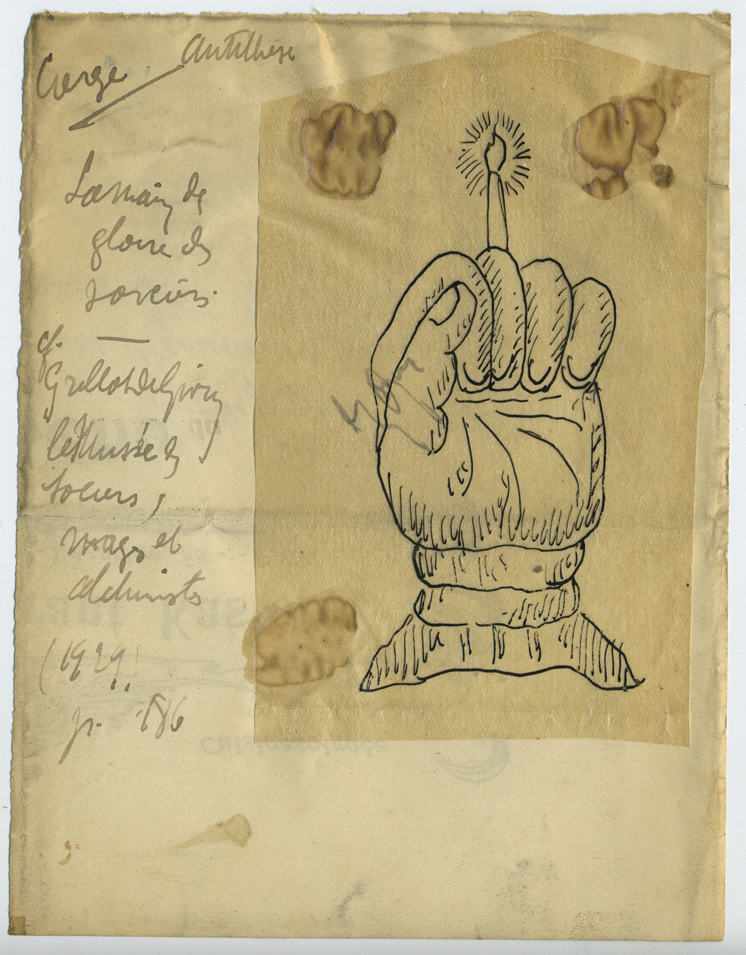 Cierge Antithèse
La main de
gloire des
sorciers.
cf.
Grillot de Givry
le Musée des
sorciers,
mages et
alchimistes
(1929)
p. 186